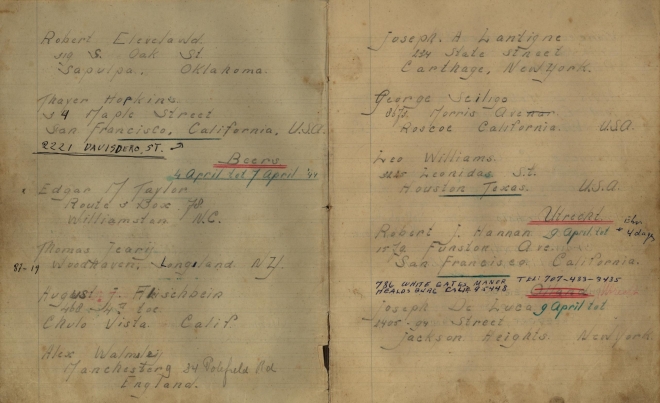 Robert Cleveland
319 S. Oak St
Sapulpa, Oklahoma.
Thayer Hopkins
54 Maple Street
San Francisco, California, U.S.A.
2221 DAVISDERO, ST.
Beers
4 April tot 7 April '44
Edgar M Taylor
Route 3 Box 78
Williamston N.C.
Thomas
87-19 Woodhaven, Longeland N.Y.
August J. Fleischbein
468 - 4th
Chula Vista Calif
Alex Walmsley
Manchester 9 24 Rd
England.
Joseph. A Lantigne
State Street
Carthage, New York.
George
Morris Avenue
Roscoe California. U.S.A.
Leo Williams.
Leonidas St.
Houston Texas. U.S.A.
Utrecht
Robert J. Hannan 9 April tot + 4 days
Funston Ave.
San Francisco California.
786 WHITE GATES MANOR TEL: 707-433-3435
HEALDSBURG CALIF 95448
Joseph De Luca 9 April tot
Street
Jackson Heights. New York.